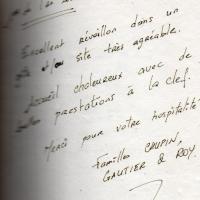 de l'an
Excellent réveillon dans un
et un site très agréable.
Accueil chaleureux avec de
belles prestations à la clef.
Merci pour votre hospitalité
Familles CRUPIN,
GAUTIER & ROY.